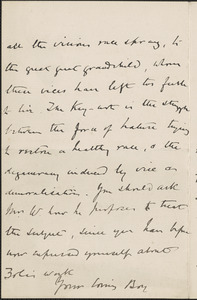 all the vicious race sprang, to
the great great grandchild, whom
their vices have left too feeble
to live. The Key-note is the struggle
between the force of nature trying
to restore a healthy race, & the
degeneracy induced by vice and
demoralisation. You should ask
Mrs W how he proposes to treat
the subject, since you have
now expressed yourself about
Zola's work
Your loving Boy